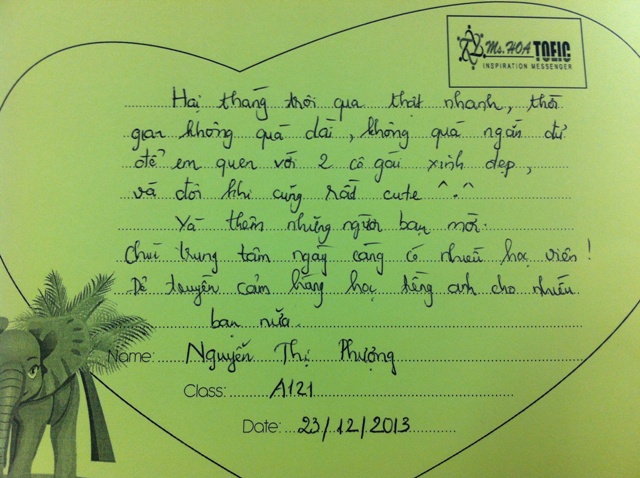 Ms. HOA TOEIC
INSPIRATION MESSENGER
Hai tháng trôi qua thật nhanh, thời
gian không quá dài, không quá ngắn đủ
để em quen với 2 cô gái xinh đẹp,
và đôi khi cũng rất cute ^.^
Và thêm những người bạn mới.
Chúc trung tâm ngày càng có nhiều học viên!
Để truyền cảm hứng học tiếng anh cho nhiều
bạn nữa.
Name: Nguyễn Thị Phượng
Class: A121
Date: 23/12/2013